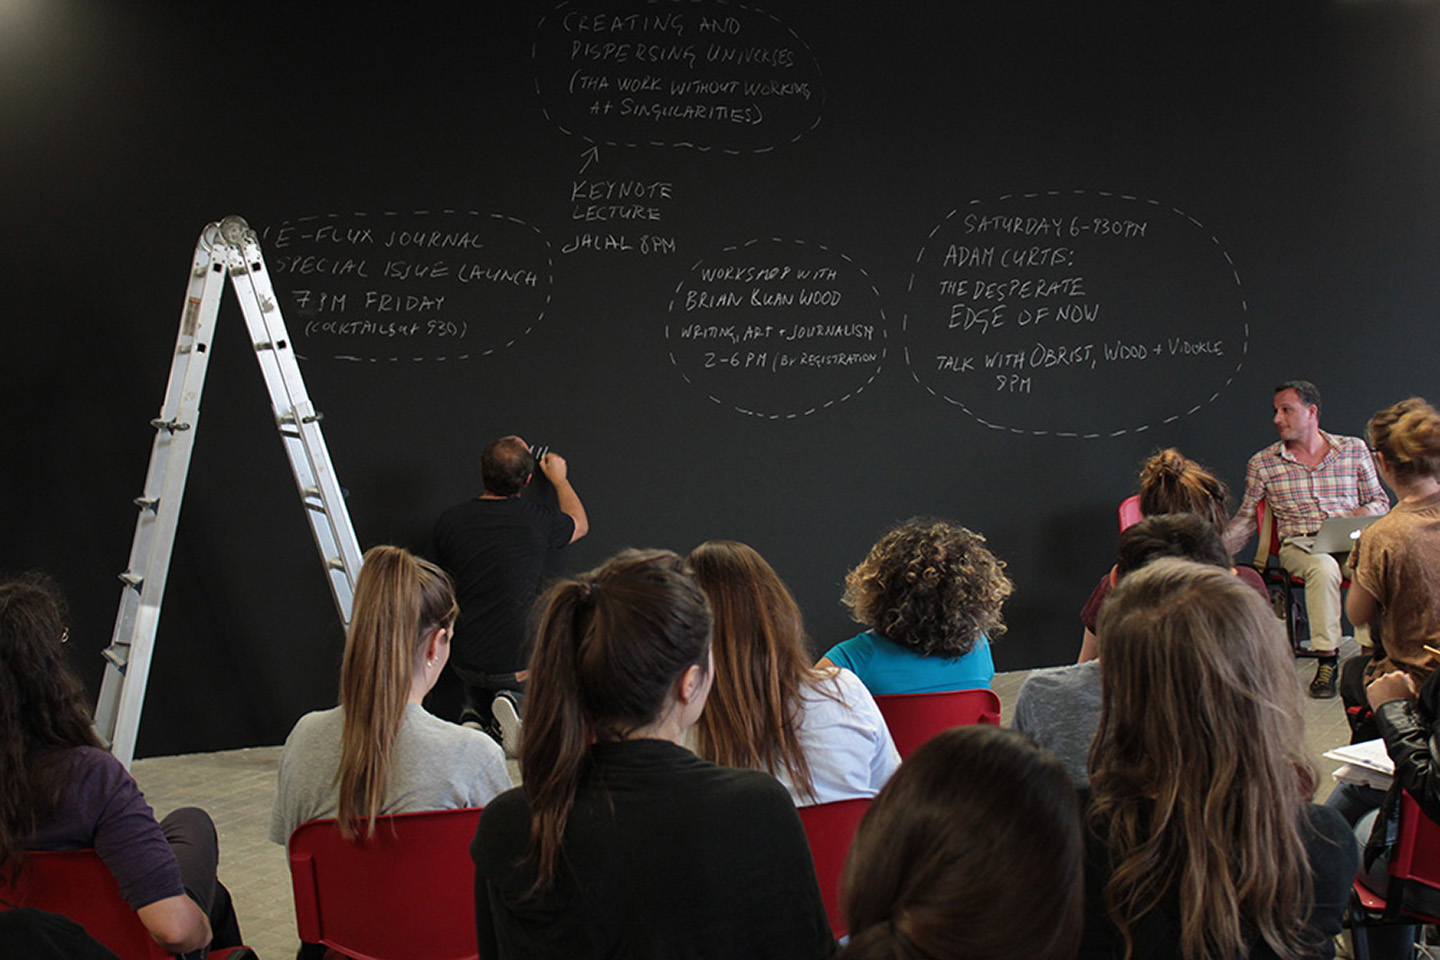 CREATING AND
DISPERSING UNIVERSES
(THA WORK WITHOUT WORKING
At SINGULARITIES)
KEYNOTE
LECTURE
JALAL 8PM
E-FLUX JOURNAL
SPECIAL ISSUE LAUNCH
7PM FRIDAY
(COCKTAILS at 930)
WORKSHOP WITH
BRIAN KUAN WOOD
WRITING, ART + JOURNALISM
2-6 PM (BY REGISTRATION
SATURDAY 6-930PM
ADAM CURTIS:
THE DESPERATE
EDGE OF NOW
TALK WITH OBRIST, WOOD + VIDOKLE
8PM